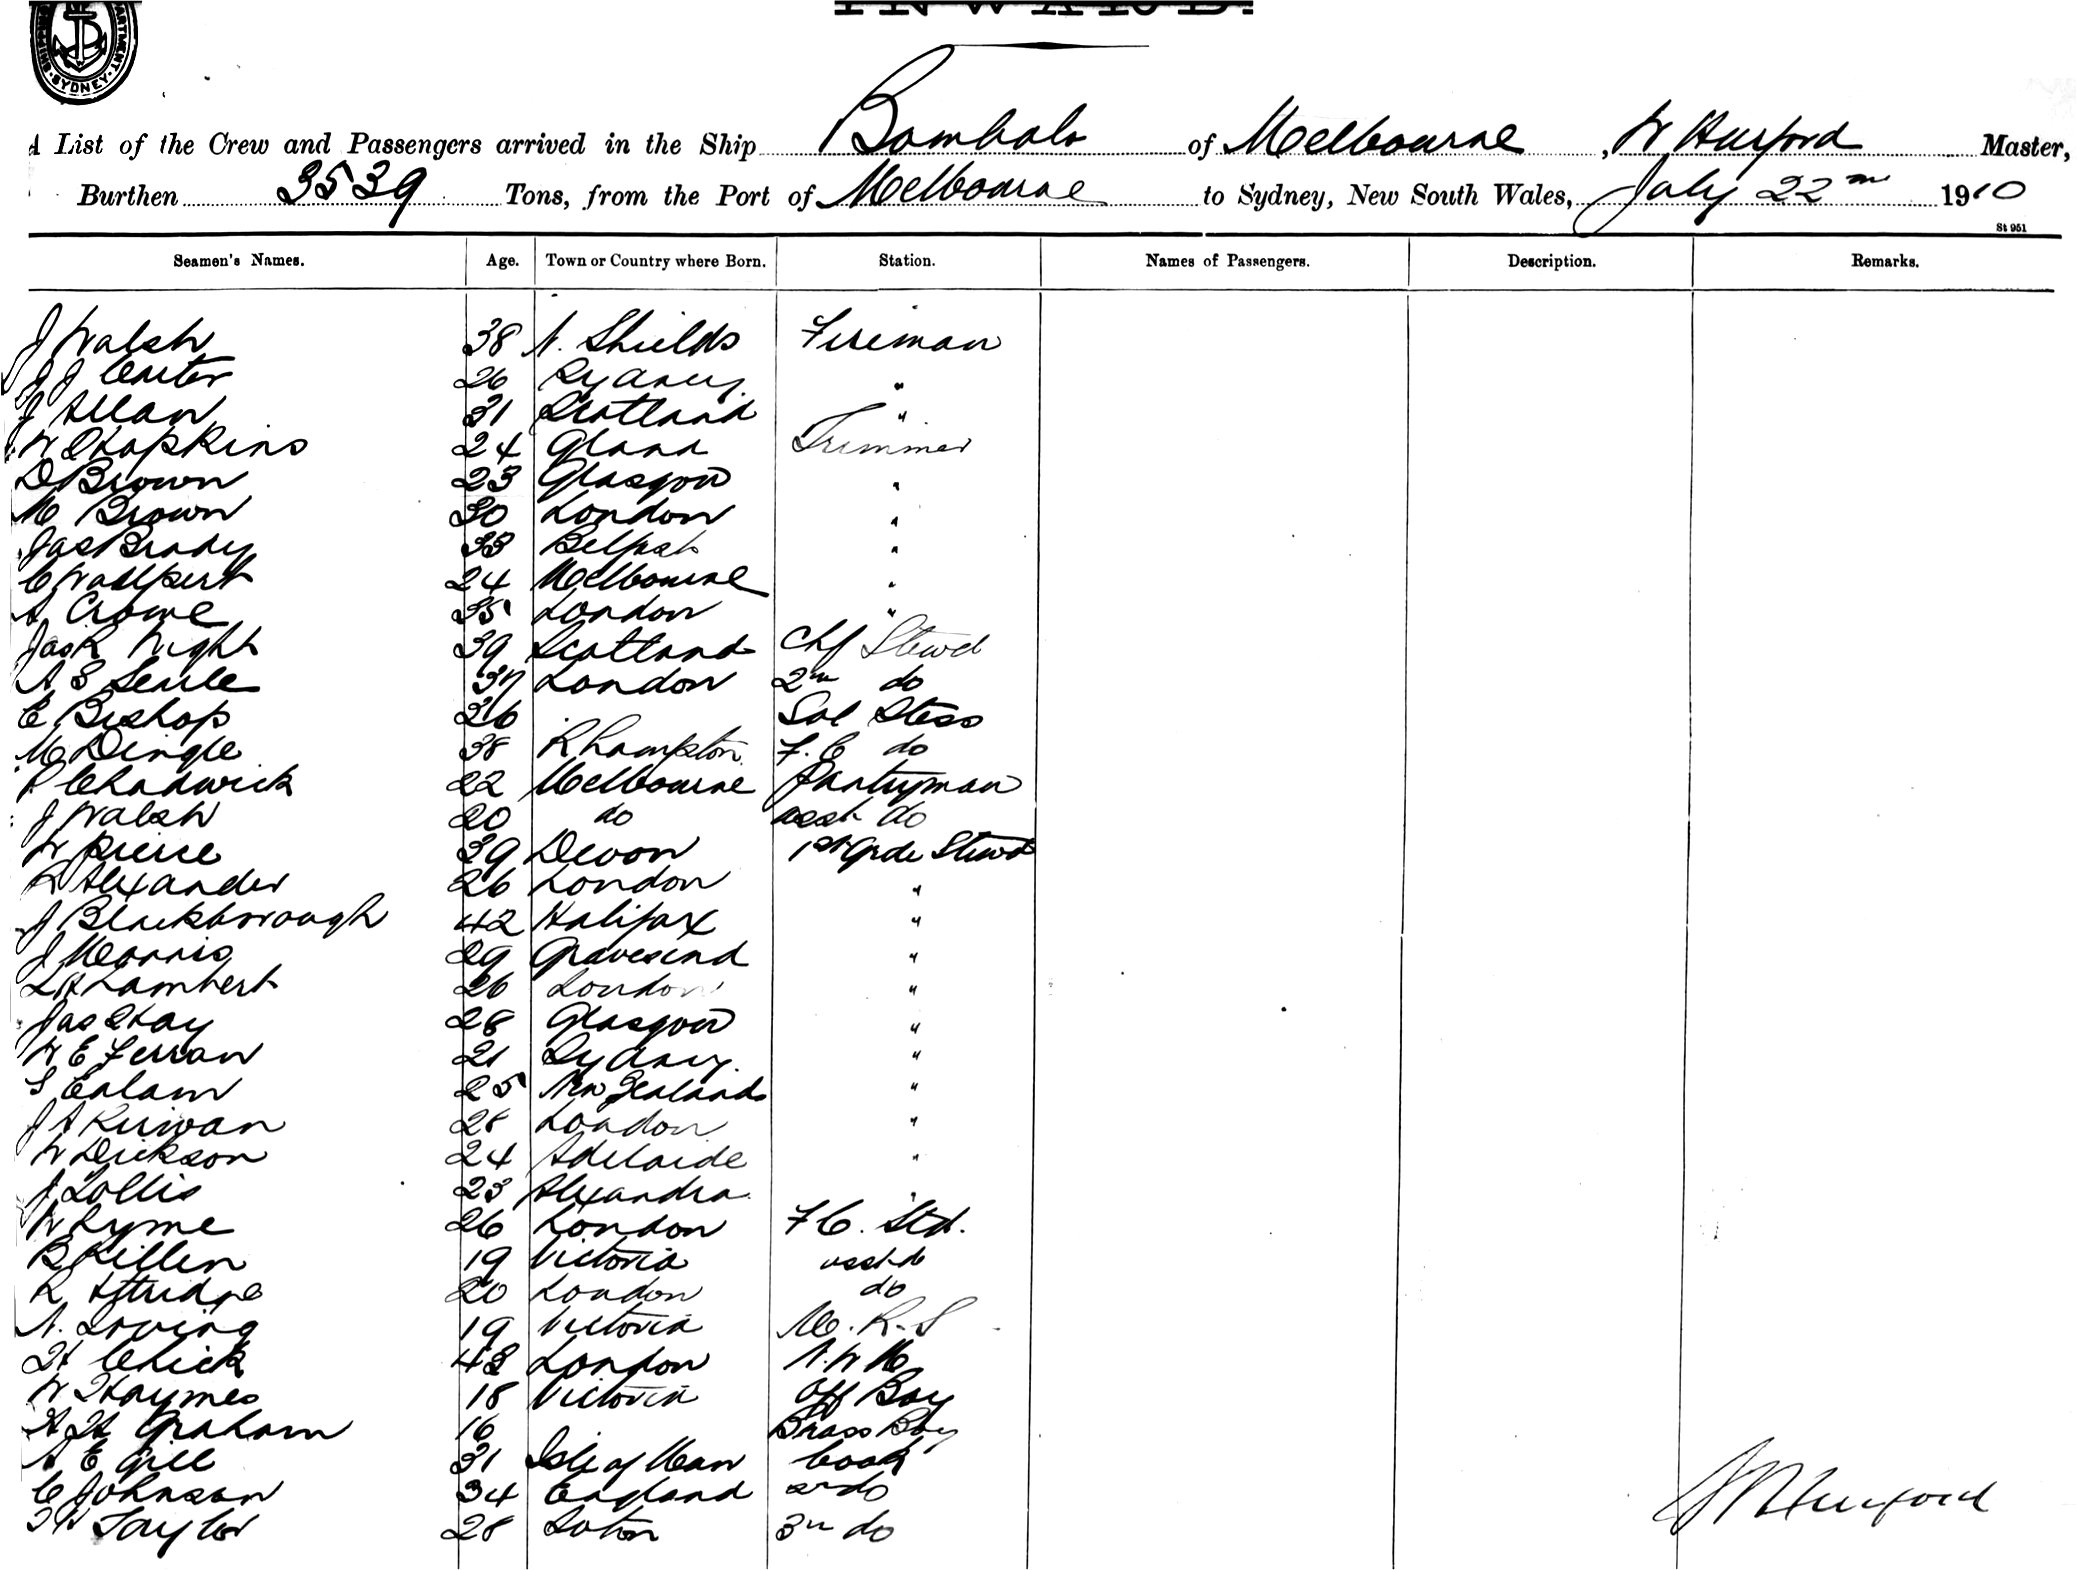 INWARD.
SHIPPING DEPARTMENT. SYDNEY
A List of the Crew and Passengers arrived in the Ship Bombala of Melbourne, W Hurford Master,
Burthen 3539 Tons, from the Port of Melbourne to Sydney, New South Wales, July 22nd 1910
St 951
Seamen's Names. Age. Town or Country where Born. Station. Names of Passengers. Description. Remarks.
J Walsh 38 N. Shields Fireman
J J Carter 26 Sydney "
J Allan 31 Scotland "
W Hopkins 24 Trimmer
D Brown 23 Glasgow "
M Brown 30 London "
Jas Brady 33 Belfast "
C Wallpert 24 Melbourne "
A Crowe 35 London "
Jas R Wight 39 Scotland Chf Stewd
A S Searle 37 London 2nd do
E Bishop 36 Sal Stess
M Dingle 38 RHampton F.C do
P Chadwick 22 Melbourne Pantryman
J Walsh 20 do asst do
W Pierse 39 Devon 1st Grde Stewd
R Alexander 26 London "
J Blackborough 42 Halifax "
J Morris 29 Gravesend "
L H Lambert 26 London "
Jas Hay 28 Glasgow "
W E Ferran 21 Sydney "
S Ealam 25 New Zealand "
J A Kirwan 28 London "
W Dickson 24 Adelaide "
J Lollis 23 Alexandra "
W Lyme 26 London F C. Std.
B Killen 19 Victoria asst do
R Attridge 20 London do
N. Loving 19 Victoria M. R. S
H Chick 43 London N. W M
W Haymes 18 Victoria Off Boy
H H Graham 16 Brass Boy
A E Gill 31 Isle of Man Cook
C Johnson 34 England 2nd do
H Taylor 28 Luton 3rd do
W Hurford